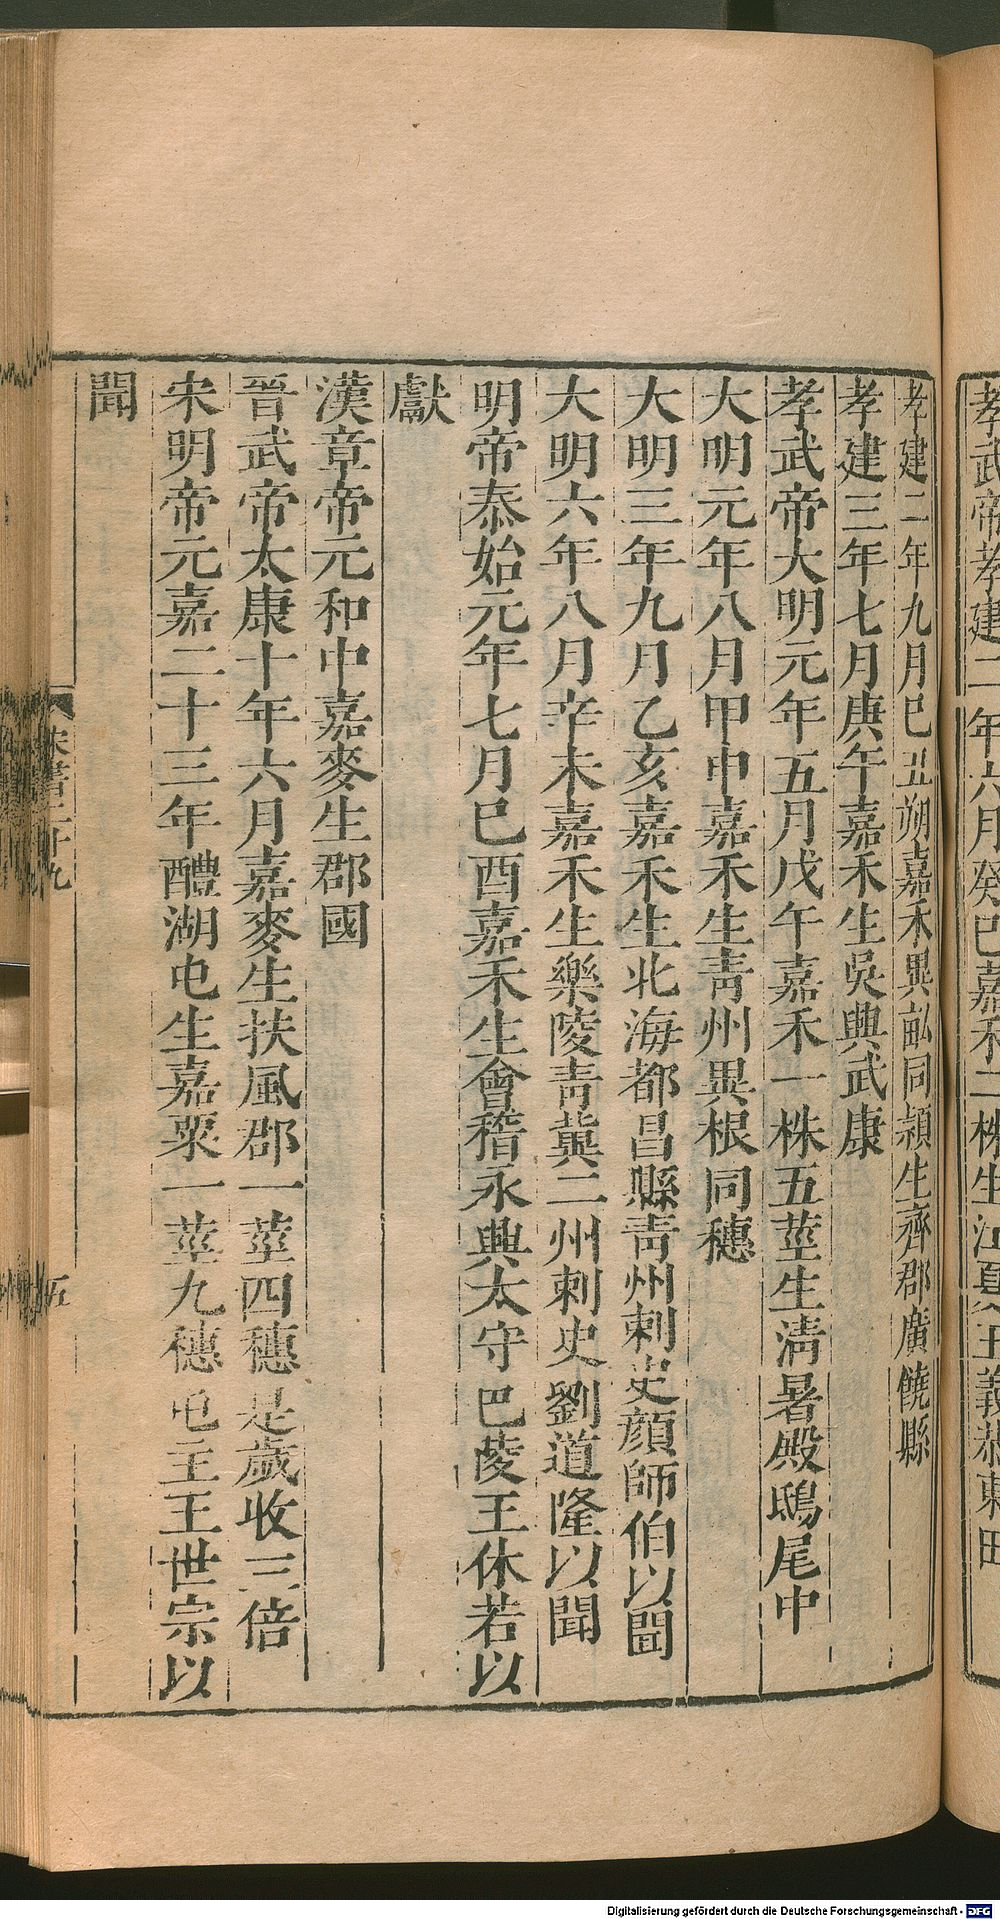 孝武帝孝建二年六月癸巳嘉禾二株生江夏王義恭東田
孝建二年九月巳丑朔嘉禾異畝同潁生齊郡廣饒縣
孝建三年七月庚午嘉禾生吳興武康
孝武帝大明元年五月戊午嘉禾一株五莖生淸暑殿鴟尾中
大明元年八月甲申嘉禾生靑州異根同穗
大明三年九月乙亥嘉禾生北海都昌縣靑州刺史顏師伯以聞
大明六年八月辛未嘉禾生樂陵靑冀二州刺史劉道隆以聞
明帝泰始元年七月巳酉嘉禾生會稽永興太守巴陵王休若以
獻
漢章帝元和中嘉麥生郡國
晉武帝太康十年六月嘉麥生扶風郡一莖四穗是歲收三倍
宋明帝元嘉二十三年醴湖屯生嘉粟一莖九穗屯主王世宗以
聞
宋書二十九
五
Digitalisierung gefördert durch die Deutsche Forschungsgemeinschaft - DFG